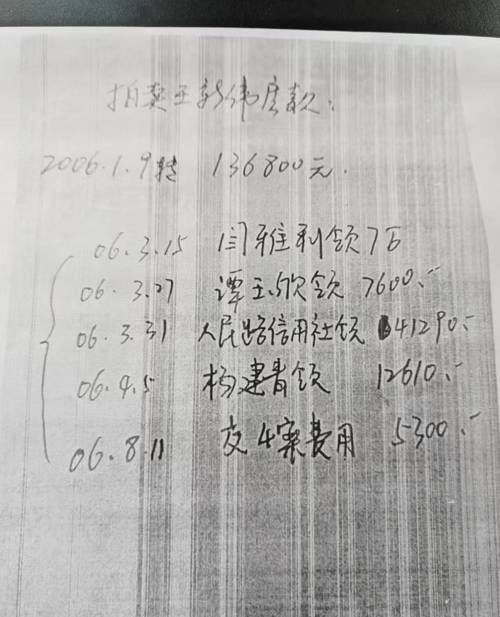 拍卖王新纬度款:
2006.1.9转 136800元.
06.3.15 闫雅利领7万
06.3.27 谭玉欣领 7600.-
06.3.31 人民路信用社领 41290.-
06.4.5 杨建青领 12610.-
06.8.11 支4案费用 5300.-